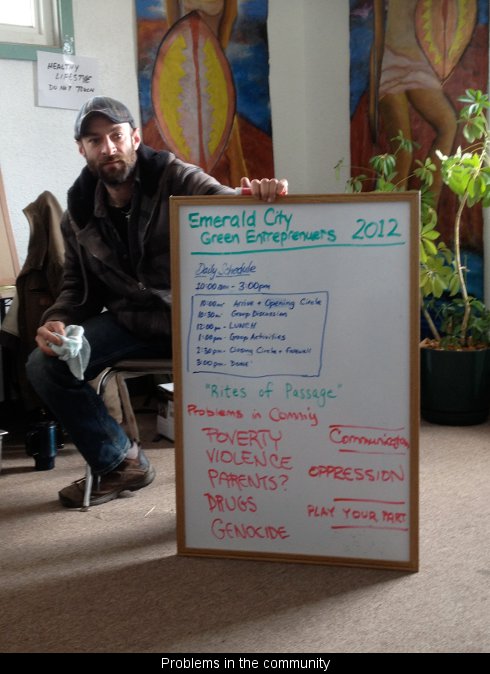 HEALTHY
LIFESTYLE
DO NOT TOUCH
Emerald City
Green Entreprenuers 2012
Daily Schedule
10:00am - 3:00pm
10:00am Arrive + Opening Circle
10:30am Group Discussion
12:00pm - LUNCH
1:00pm - Group Activities
2:30pm - Closing Circle + Farewell
3:00pm - DONE
"Rites of Passage"
Problems in
POVERTY
VIOLENCE
PARENTS?
DRUGS
GENOCIDE
Communication
OPPRESSION
PLAY YOUR PART
Problems in the community